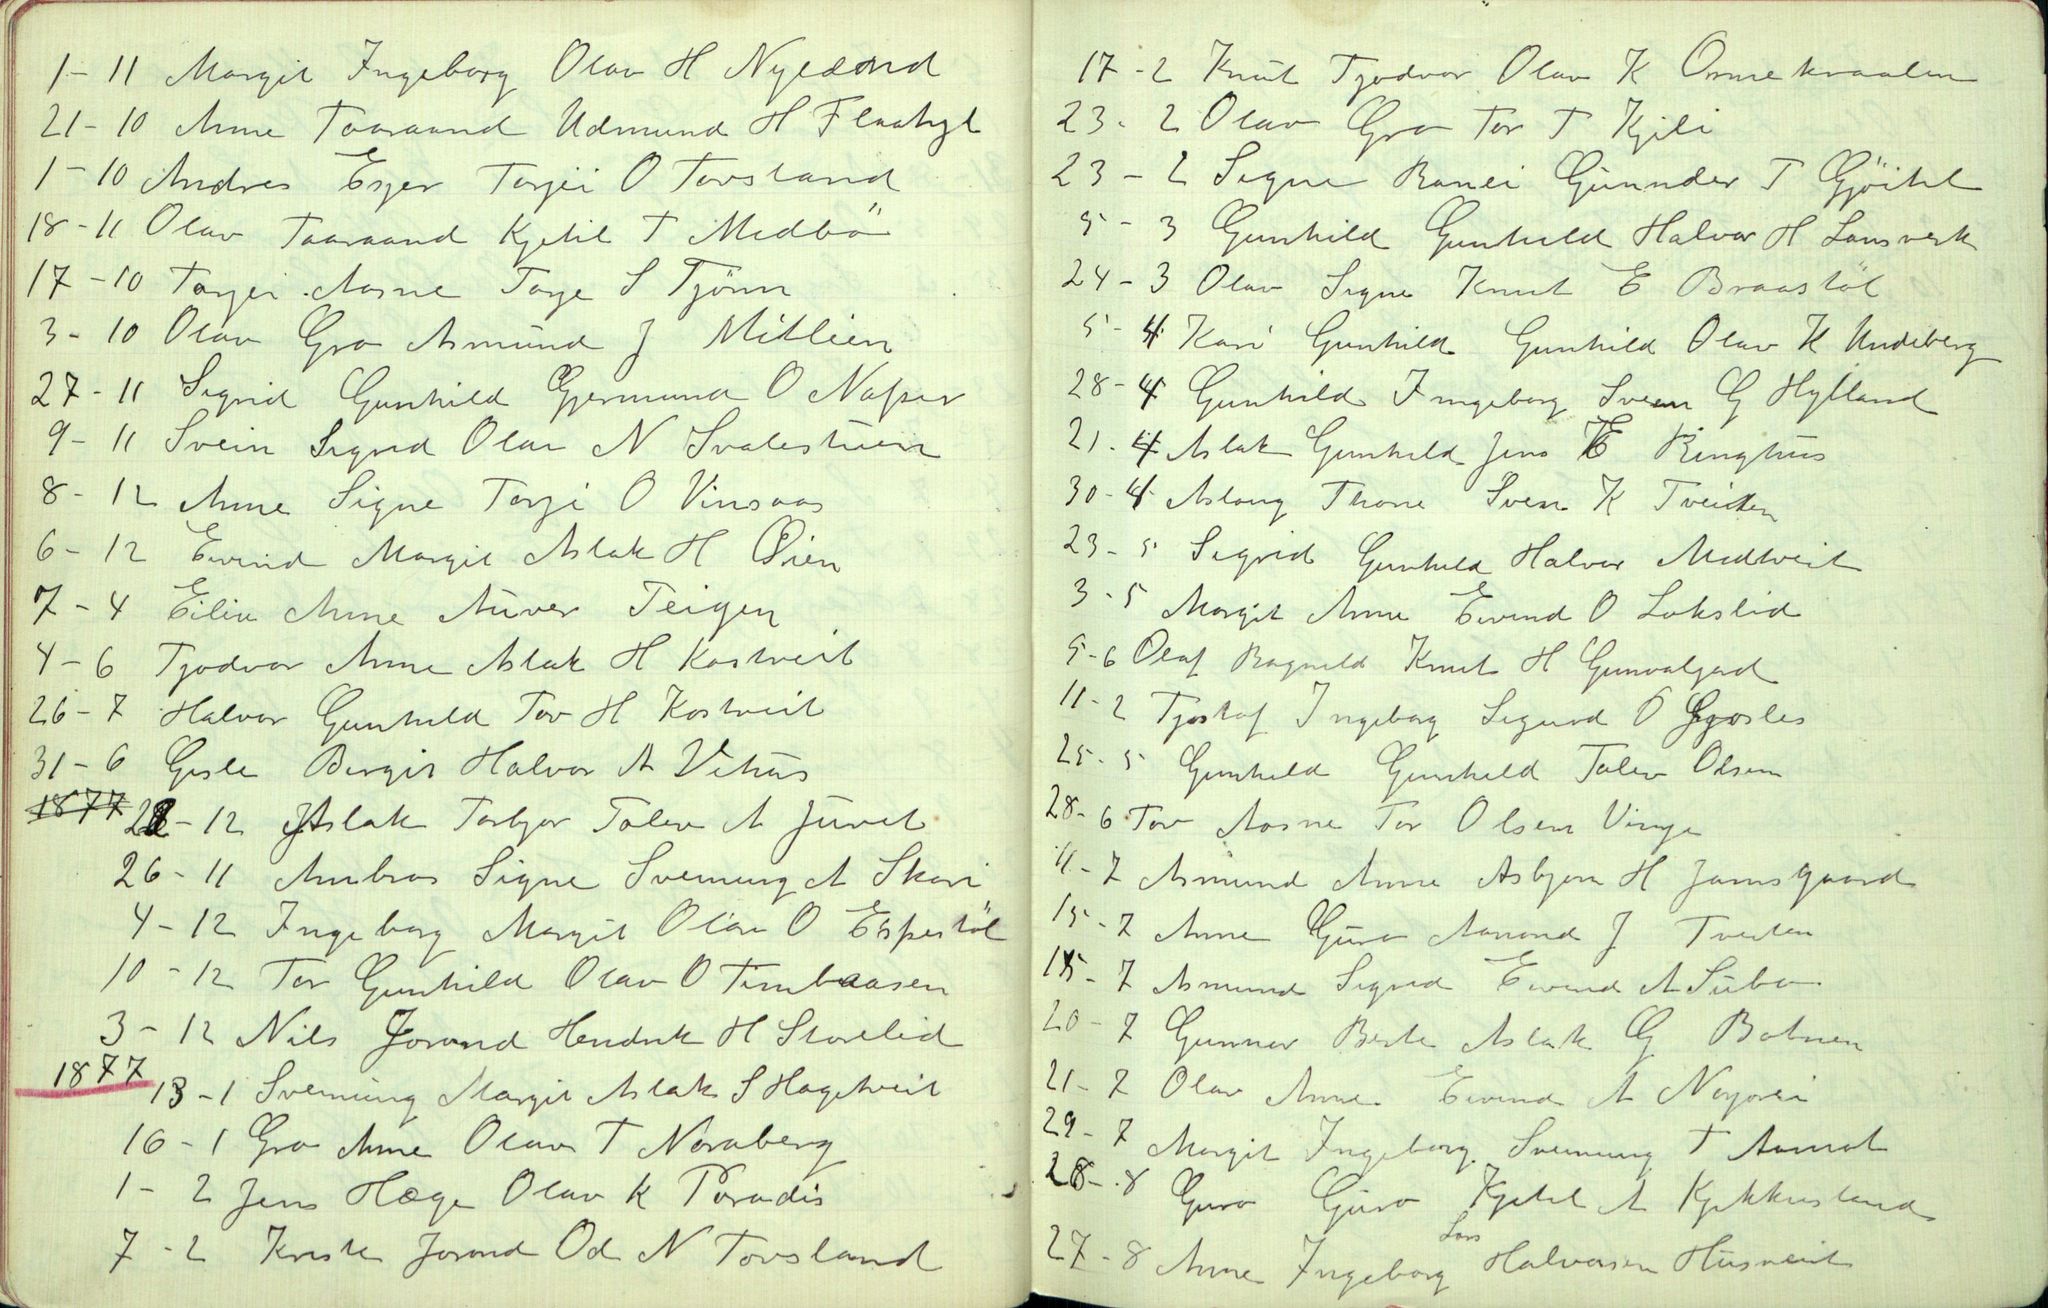 1-11 Margit Ingeborg Olav H Nylænd
21-10 Anne Taaraand Udmund H Flaahyl
1-10 Andres Esper Torjei O Tovsland
18-11 Olav Taaraand Kjetil T Midbö
17-10 Torjei Aasne Torje S Tjönn
3-10 Olav Gro Asmund J Mitlien
27-11 Sigrid Gunhild Gjermund O Napper
9-11 Svein Sigrid Olav N Svalestuen
8-12 Anne Signe Torje O Vinsaas
6-12 Eivind Margit Aslak H Öien
7-4 Eiliv Anne Anver Teigen
4-6 Tjodvor Anne Aslak H Kostveit
26-7 Halvor Gunhild Tov H Kostveit
31-6 Gisle Birgit Halvor A Vehus
1877 28-12 Aslak Torbjor Talev A Juvet
26-11 Ambros Signe Sveinung A Skori
4-12 Ingeborg Margit Olav O Espestöl
10-12 Tor Gunhild Olav O Timbaasen
3-12 Nils Jorond Hendrik H Storelid
1877 13-1 Sveinung Margit Aslak S Hagetveit
16-1 Gro Anne Olav T Noraberg
1-2 Jens Hæge Olav K Paradis
7-2 Kristi Jorond Od N Tovsland
17-2 Knut Tjodvor Olav K Ormekraalen
23-2 Olav Gro Tor T Kjili
23-2 Signe Ranei Gunnder T Gjöitil
5-3 Gunhild Gunhild Halvor H Lansverk
24-3 Olav Signe Knut E Braastöl
5-4 Kari Gunhild Gunhild Olav K Undeberg
28-4 Gunhild Ingeborg Svein G Hylland
21-4 Aslak Gunhild Jens E Ringhus
30-4 Aslaug Thone Svein K Tveiten
23-5 Sigrid Gunhild Halvor Midtveit
3-5 Margit Anne Eivind O Lokslid
5-6 Olaf Ragnild Knut H Gunvalgjord
11-2 Tjostof Ingeborg Sigurd O Gjosles
25-5 Gunhild Gunhild Talev Olsen
28-6 Tov Aasne Tor Olsen Vinje
11-7 Asmund Anne Asbjorn H Jamsgaard
15-7 Anne Guro Aanond J Tveiten
15-7 Asmund Sigrid Eivind A Subo
20-7 Gunnar Birte Aslak G Botnen
21-7 Olav Anne Eivind A Nojorei
29-7 Margit Ingeborg Sveinung T Aamot
28-8 Guro Guro Kjetil A Kjekkusland
27-8 Anne Ingeborg Lars Halvorsen Husveit